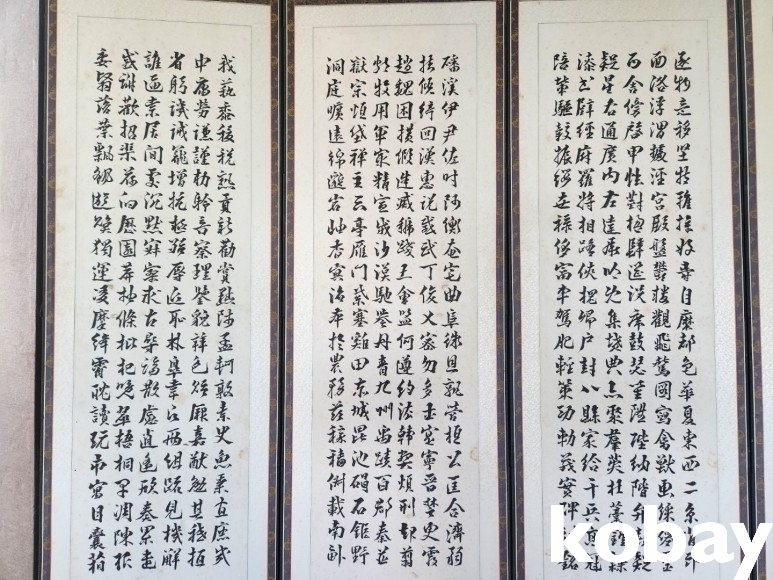 逐物意移堅持雅操好爵自縻都邑華夏東西二京背邙
面洛浮渭據涇宮殿盤鬱樓觀飛驚圖寫禽獸畫綵仙靈
丙舍傍啓甲帳對楹肆筵設席鼓瑟吹笙陞階納陛弁轉
疑星右通廣內左達承明既集墳典亦聚群英杜稾鍾隸
漆書壁經府羅將相路俠槐卿戶封八縣家給千兵高冠
陪輦驅轂振纓世祿侈富車駕肥輕策功勒茂實碑刻銘
磻溪伊尹佐時阿衡奄宅曲阜微旦孰營桓公匡合濟弱
扶傾綺回漢惠說感武丁俊乂密勿多士寔寧晉楚更霸
趙魏困橫假途滅虢踐土會盟何遵約法韓弊煩刑起翦
頗牧用軍最精宣威沙漠馳譽丹青九州禹跡百郡秦并
嶽宗恒岱禪主云亭雁門紫塞雞田赤城昆池碣石鉅野
洞庭曠遠綿邈巖岫杳冥治本於農務茲稼穡俶載南畝
我藝黍稷稅熟貢新勸賞黜陟孟軻敦素史魚秉直庶幾
中庸勞謙謹勑聆音察理鑒貌辨色貽厥嘉猷勉其祗植
省躬譏誡寵增抗極殆辱近恥林皋幸即兩組疏見機解
誰逼索居閒處沉默寂寥求古尋論散慮逍遙欣奏累遣
慼謝歡招渠荷的歷園莽抽條枇杷晚翠梧桐早凋陳根
委翳落葉飄颻遊鵾獨運凌摩絳霄耽讀翫市寓目囊箱
kobay